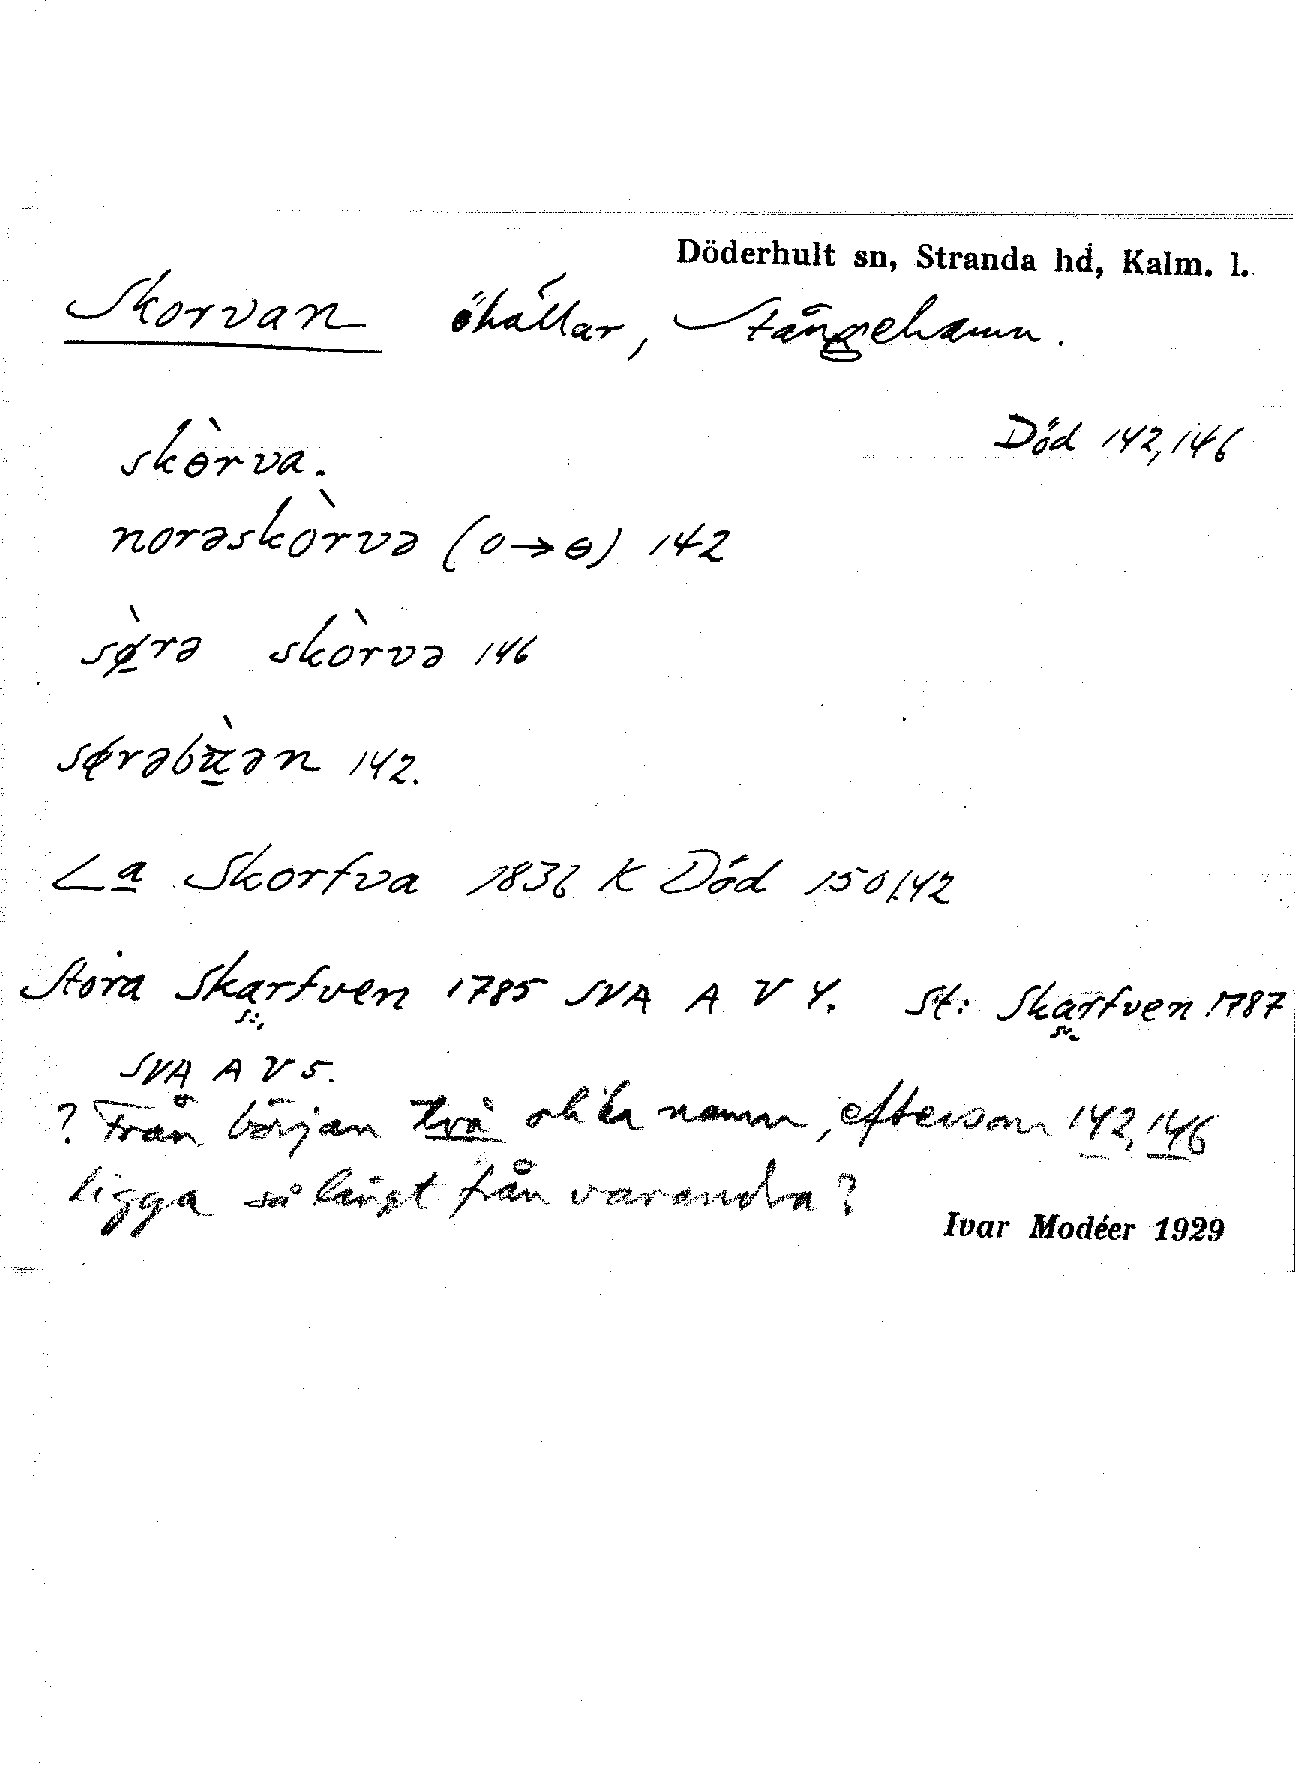 Döderhult sn, Stranda hd, Kalm. l.
Skorvan öhällar, Stångehamn.
Död 142,146
skɵ̀rva.
norəskòrvə (o→ɵ) 142
sø̀rə skòrvə 146
sørəbʉ̀ən 142.
La Skorfva 1836 K Död 150/142
Stora Skarfven 1785 SVA A V 4. St: Skarfven 1787
SVA A V 5.
? Från början två olika namn, eftersom 142, 146
ligga så långt från varandra?
Ivar Modéer 1929